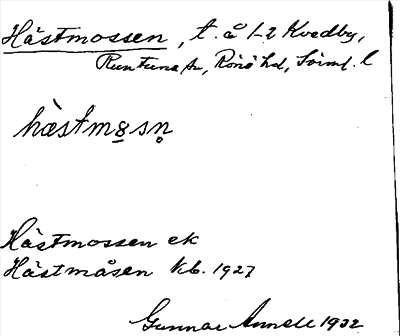 Hästmossen, t. å 1-2 Kvedby,
Runtuna sn, Rönö hd, Söiml. l
hästm8sn
Hästmossen ek
Hästmåsen kb. 1927
Gunnar Annell 1932